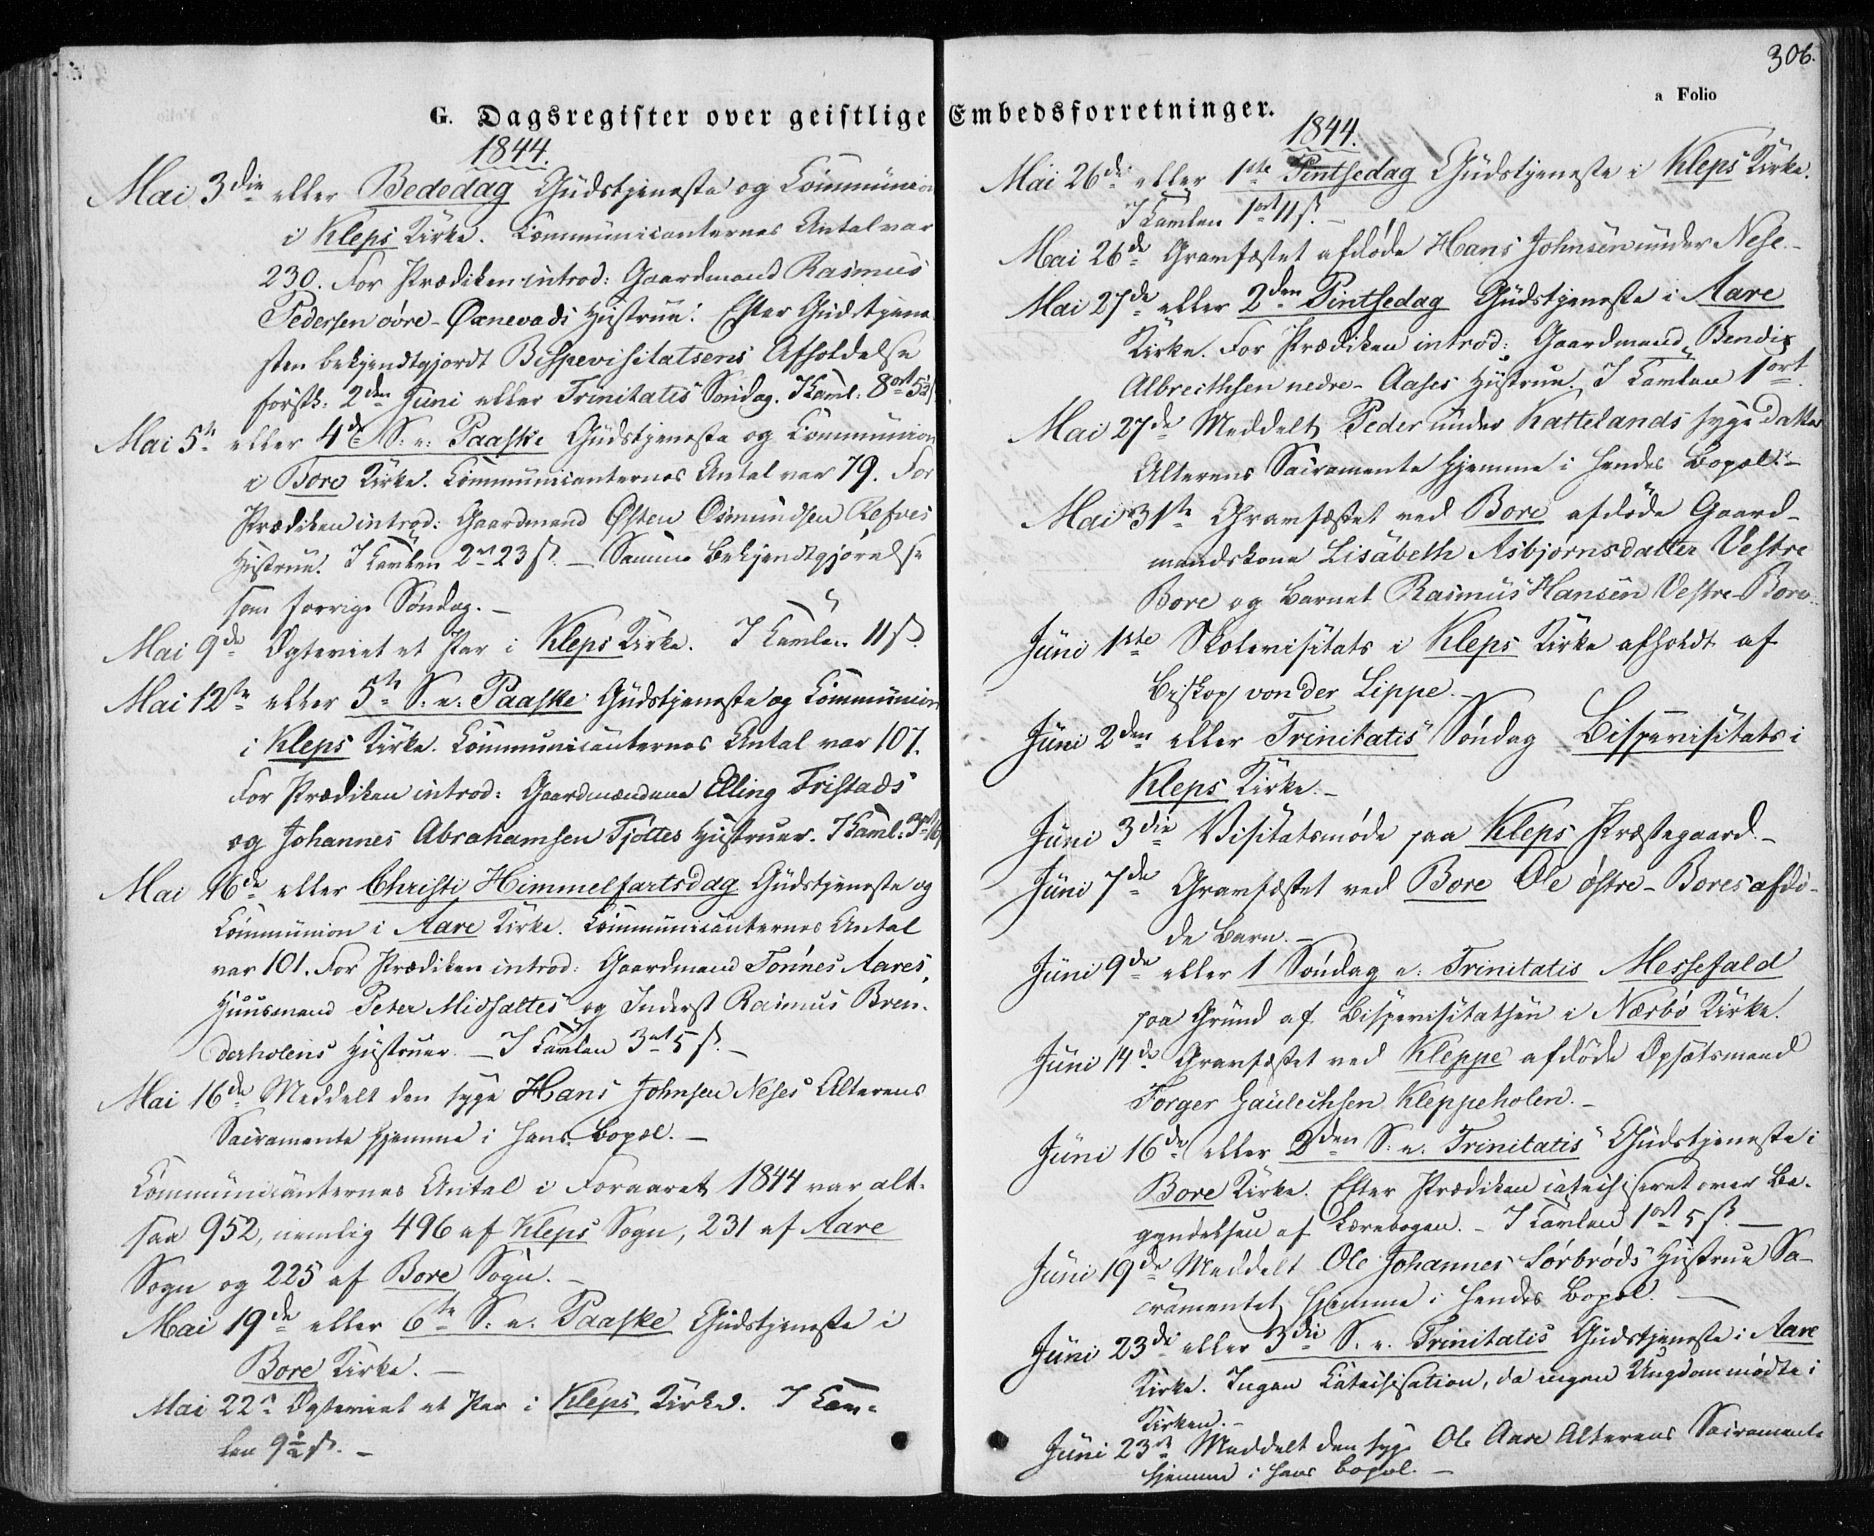 G. Dagsregister over geistlige
1844.
Mai 3die eller Bededag Gudstjeneste og Communion
i Kleps Kirke. Communicanternes Antal var
230. For Prædiken introd: Gaardmand Rasmus
Pedersen øvre-Øxnevads Hustrue. Efter Gudstjene-
sten bekjendtgjordt Bispevisitatsens Afholdelse
førstk: 2den Juni eller Trinitatis Søndag. I Kaml:
Mai 5te eller 4de S. e. Paaske Gudstjeneste og Communion
i Bore Kirke. Communicanternes Antal var 79. For
Prædiken introd: Gaardmand Østen Osmundsen Refves
Hustrue. I Kamlen 2ort 23 ß. – Samme Bekjendtgjørelse
som forrige Søndag. –
Mai 9de Ægteviet et Par i Kleps Kirke. I Kamlen 11 ß.
Mai 12te eller 5te S. e: Paaske Gudstjeneste og Communion
i Kleps Kirke. Communicanternes Antal var 107.
For Prædiken introd: Gaardmændene Elling Tristads
og Johannes Abrahamsen Tjøttes Hustruer. I Kaml:
Mai 16de eller Christi Himmelfartsdag Gudstjeneste og
Communion i Aare Kirke. Communicanternes Antal
var 101. For Prædiken introd: Gaardmand Tønnes Aares,
Huusmand Peter Midsaltes og Inderst Rasmus Bren-
derholens Hustruer. – I Kamlen 3ort 5 ß. –
Mai 16de Meddelt den syge Hans Johnsen Neses Alterens
Sacramente hjemme i hans Bopæl. –
Communicanternes Antal i Foraaret 1844 var alt-
saa 952, nemlig 496 af Kleps Sogn, 231 af Aare
Sogn og 225 af Bore Sogn. –
Mai 19de eller 6te S. e. Paaske Gudstjeneste i
Bore Kirke. –
Mai 22. Ægteviet et Par i Kleps Kirke. I Kam-
len 9½ ß. –
306.
a Folio
Embedsforretninger.
1844.
Mai 26de eller 1ste Pintsedag Gudstjeneste i Kleps Kirke.
I Kamlen 1ort 11 ß. –
Mai 26de Gravfæstet afdøde Hans Johnsen under Nese. –
Mai 27de eller 2den Pintsedag Gudstjeneste i Aare
Kirke. For Prædiken introd: Gaardmand Bendix
Albrecthsen nedre-Aases Hustrue. I Kamlen 1ort.
Mai 27de Meddelt Peder under Kattelands syge Datter
Alterens Sacramente hjemme i hendes Bopæl. –
Mai 31te Gravfæstet ved Bore afdøde Gaard-
mandskone Lisabeth Asbjørnsdatter Vestre
Bore og Barnet Rasmus Hansen Vestre-Bore.
Juni 1ste Skolevisitats i Kleps Kirke afholdt af
Biskop von der Lippe. –
Juni 2den eller Trinitatis Søndag Bispevisitats i
Kleps Kirke. –
Juni 3die Visitatsmøde paa Kleps Præstegaard. –
Juni 7de Gravfæstet ved Bore Ole østre-Bores afdø-
de Barn. –
Juni 9de eller 1 Søndag e: Trinitatis Messefald
paa Grund af Bispevisitatsen i Nærbø Kirke.
Juni 14de Gravfæstet ved Kleppe afdøde Opsætsmand
Torger Gaulechsen Kleppeholen. –
Juni 16de eller 2den S. e. Trinitatis Gudstjeneste i
Bore Kirke. Efter Prædiken catechiseret over Be-
gyndelsen af Lærebogen. – I Kamlen 1ort 5 ß. –
Juni 19de Meddelt Ole Johannes Sørbrøds Hustrue Sa-
cramentet hjemme i hendes Bopæl. –
Juni 23de eller 3die S. e. Trinitatis Gudstjeneste i Aare
Kirke. Ingen Catechisation, da ingen Ungdom mødte i
Kirken. –
Juni 23de Meddelt den syge Ole Aare Alterens Sacramente
hjemme i hans Bopæl. –